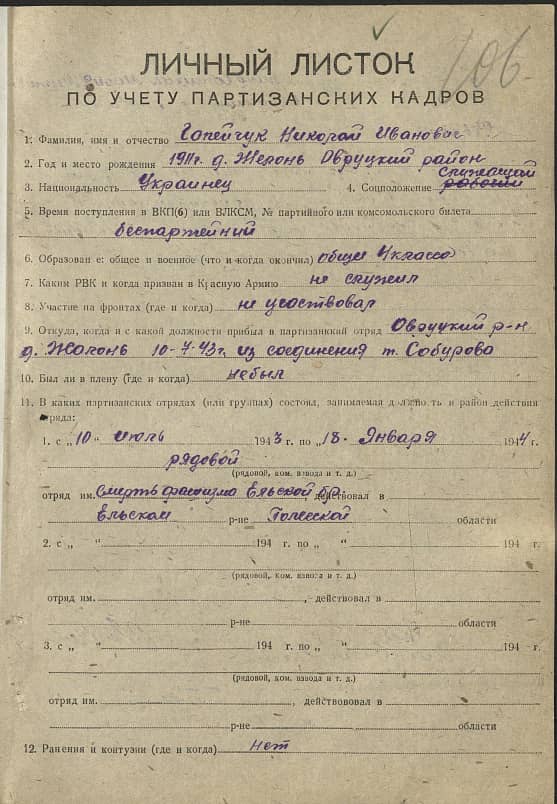 706.
ЛИЧНЫЙ ЛИСТОК
ПО УЧЕТУ ПАРТИЗАНСКИХ КАДРОВ
1. Фамилия, имя и отчество Гопейчук Николай Иванович
2. Год и место рождения 1911г. д. Желонь Овруцкий район
служащий
3. Национальность Украинец 4. Соцположение рабочий
5. Время поступления в ВКП(б) или ВЛКСМ, № партийного или комсомольского билета
беспартейний
6. Образован е: общее и военное (что и когда окончил) общее 4 класса
7. Каким РВК и когда призван в Красную Армию не служил
8. Участие на фронтах (где и когда) не участвовал
9. Откуда, когда и с какой должности прибыл в партизанкий отряд Овруцкий р-н
д. Жолонь 10-7-43г. из соединения т. Сабурова
10. Был ли в плену (где и когда) небыл
11. В каких партизанских отрядах (или группах) состоял, занимаемая должно ть и район действия
отряда:
1. с „10" июль 1943 г. по „18" Января 1944 г.
рядовой
(рядовой, ком. взвода и т. д.)
отряд им. Смерть фашизма Ельской бр. действовал в
Ельском р-не Полесской области
2. с „ " 194 г. по „ " 194 г.
(рядовой, ком. взвода и т. д.)
отряд им. , действовал в
р-не области
3. с „ " 194 г. по „ " 194 г.
(рядовой, ком. взвода и т. д.)
отряд им. , действововал в
р-не области
12. Ранения и контузии (где и когда) нет